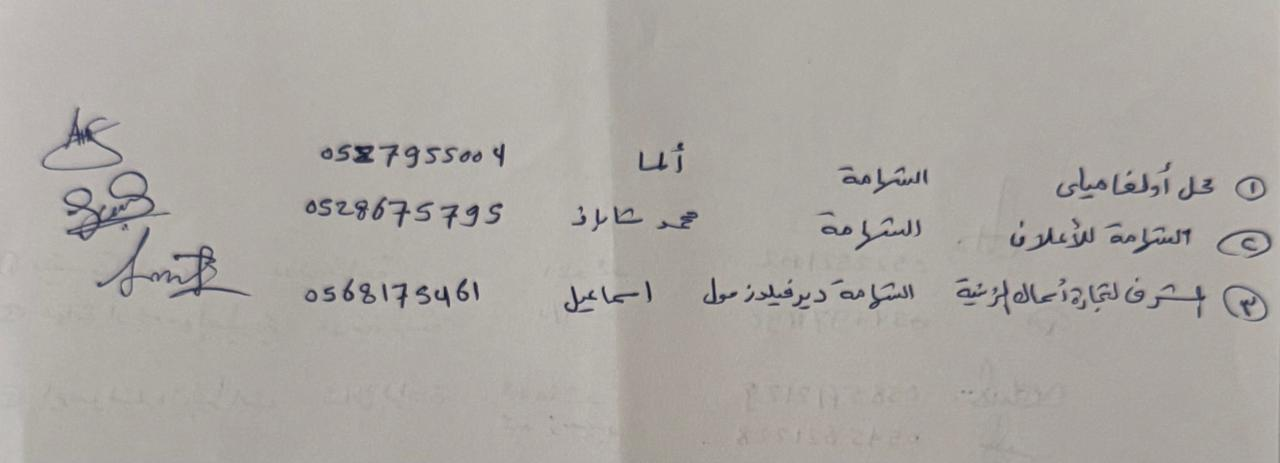 ① محل أولفا ميلي الشهامة ألما 0527955004
② الشهامة للأعلان الشهامة محمد 0528675795
③ الشرف لتجارة أسماك الزينة الشهامة ديرفيلدز مول اسماعيل 0568175461